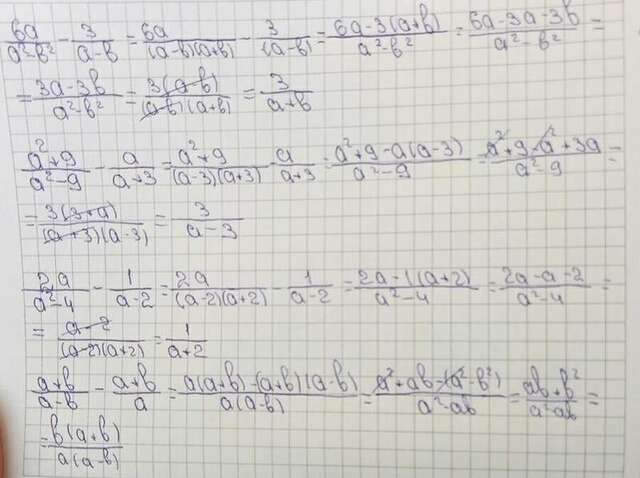 6a/(a²-в²) - 3/(a-в) = 6a/((a-в)(a+в)) - 3/(a-в) = (6a-3(a+в))/(a²-в²) = (6a-3a-3в)/(a²-в²) =
= (3a-3в)/(a²-в²) = 3(a-в)/((a-в)(a+в)) = 3/(a+в)
(a²+9)/(a²-9) - a/(a+3) = (a²+9)/((a-3)(a+3)) - a/(a+3) = (a²+9-a(a-3))/(a²-9) = (a²+9-a²+3a)/(a²-9) =
= 3(3+a)/((a+3)(a-3)) = 3/(a-3)
2a/(a²-4) - 1/(a-2) = 2a/((a-2)(a+2)) - 1/(a-2) = (2a-1(a+2))/(a²-4) = (2a-a-2)/(a²-4) =
= (a-2)/((a-2)(a+2)) = 1/(a+2)
(a+в)/(a-в) - (a+в)/a = (a(a+в)-(a+в)(a-в))/(a(a-в)) = (a²+aв-(a²-в²))/(a²-aв) = (aв+в²)/(a²-aв) =
= в(a+в)/(a(a-в))